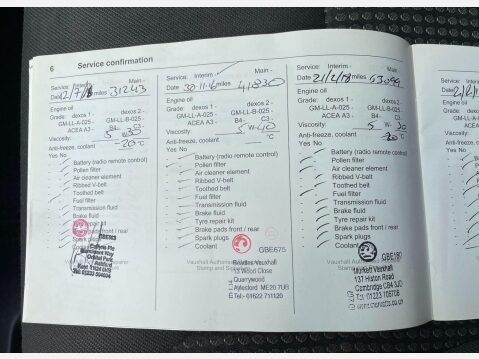 6 Service confirmation
Service: Interim - Main -
Date 2/7/ miles 31243
Engine oil
Grade: dexos 1 - dexos 2 -
GM-LL-A-025 - GM-LL-B-025 -
ACEA A3 - B4- C3 -
Viscosity: 5 W- 30
Anti-freeze, coolant -20 °C
Yes No
Battery (radio remote control)
Pollen filter
Air cleaner element
Ribbed V-belt
Toothed belt
Fuel filter
Transmission fluid
Brake fluid
Tyre repair kit
Brake pads front / rear
Spark plugs
Coolant
Orbital Park
Ashford
Service: Interim - Main -
Date 30-11-16 miles 41830
Engine oil
Grade: dexos 1 - dexos 2 -
GM-LL-A-025 - GM-LL-B-025 -
ACEA A3 - B4- C3 -
Viscosity: 5 W- 40
Anti-freeze, coolant °C
Yes No
Battery (radio remote control)
Pollen filter
Air cleaner element
Ribbed V-belt
Toothed belt
Fuel filter
Transmission fluid
Brake fluid
Tyre repair kit
Brake pads front / rear
Spark plugs
Coolant
GBE675
Vauxhall Authorised
Stamp and
Vauxhall
Wood Close
Quarrywood
Aylesford ME20 7UB
Tel: 01622 711120
Service: Interim - Main -
Date 21/2/18 miles 63099
Engine oil
Grade: dexos 1 - dexos 2 -
GM-LL-A-025 - GM-LL-B-025 -
ACEA A3 - B4- C3 -
Viscosity: 5 W- 30
Anti-freeze, coolant °C
Yes No
Battery (radio remote control)
Pollen filter
Air cleaner element
Ribbed V-belt
Toothed belt
Fuel filter
Transmission fluid
Brake fluid
Tyre repair kit
Brake pads front / rear
Spark plugs
Coolant
Murkett Vauxhall
137 Histon Road
Cambridge CB4 3JD
Tel: 01223
Service:
Date
Engine oil
Grade:
Viscosity:
Anti-freeze,
Yes No